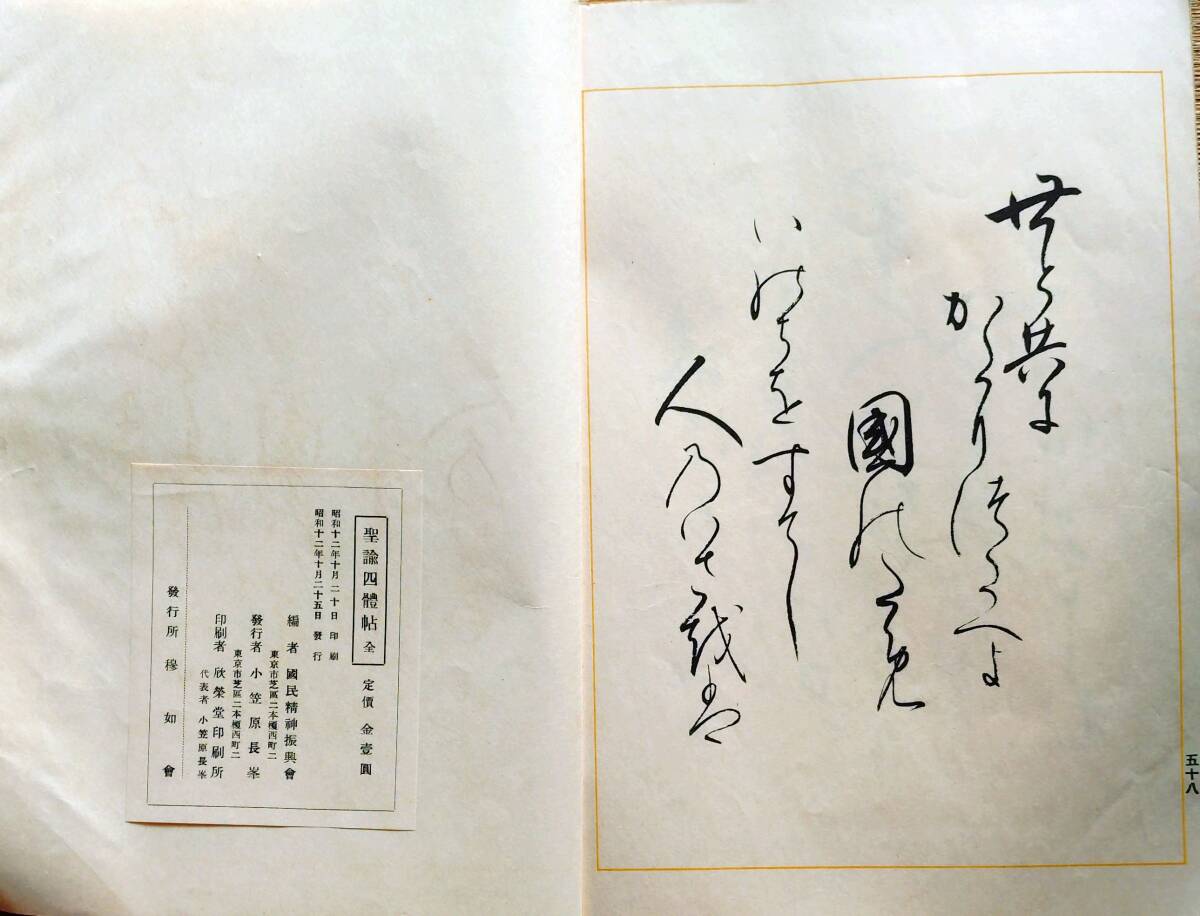 世と共に
かたりつたへよ
國のため
いのちをすてし
人乃いさ越を
五十八
聖諭四體帖 全 定價 金壹圓
昭和十二年十月二十日 印刷
昭和十二年十月二十五日 發行
編者 國民精神振興會
東京市芝區二本榎西町二
發行者 小笠原長峯
東京市芝區二本榎西町二
印刷者 欣榮堂印刷所
代表者 小笠原長峯
發行所 穆如會